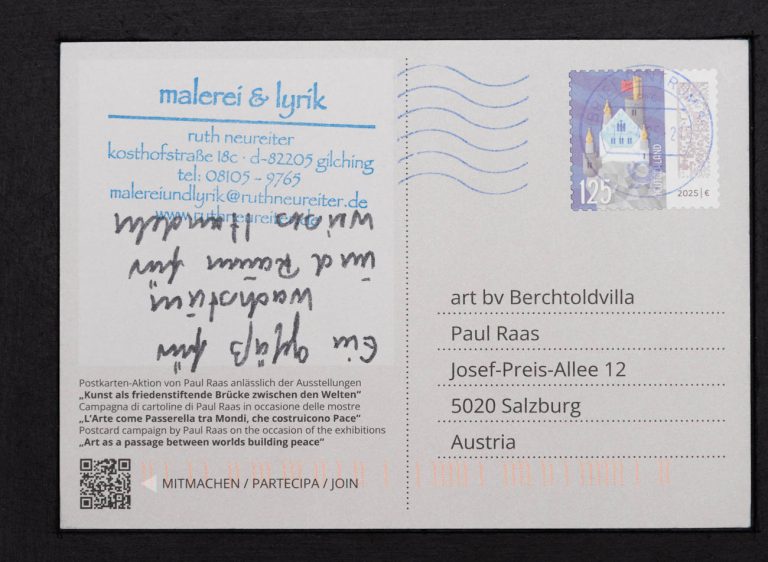 malerei & lyrik
ruth neureiter
kosthofstraße 18c · d-82205 gilching
tel: 08105 – 9765
malereiundlyrik@ruthneureiter.de
www.ruthneureiter.de
Ein Gefäß für
Wachstum
und Raum für
Handeln
Postkarten-Aktion von Paul Raas anlässlich der Ausstellungen
„Kunst als friedenstiftende Brücke zwischen den Welten"
Campagna di cartoline di Paul Raas in occasione delle mostre
„L'Arte come Passerella tra Mondi, che costruicono Pace"
Postcard campaign by Paul Raas on the occasion of the exhibitions
„Art as a passage between worlds building peace"
MITMACHEN / PARTECIPA / JOIN
125
DEUTSCHLAND
2025 | €
art bv Berchtoldvilla
Paul Raas
Josef-Preis-Allee 12
5020 Salzburg
Austria